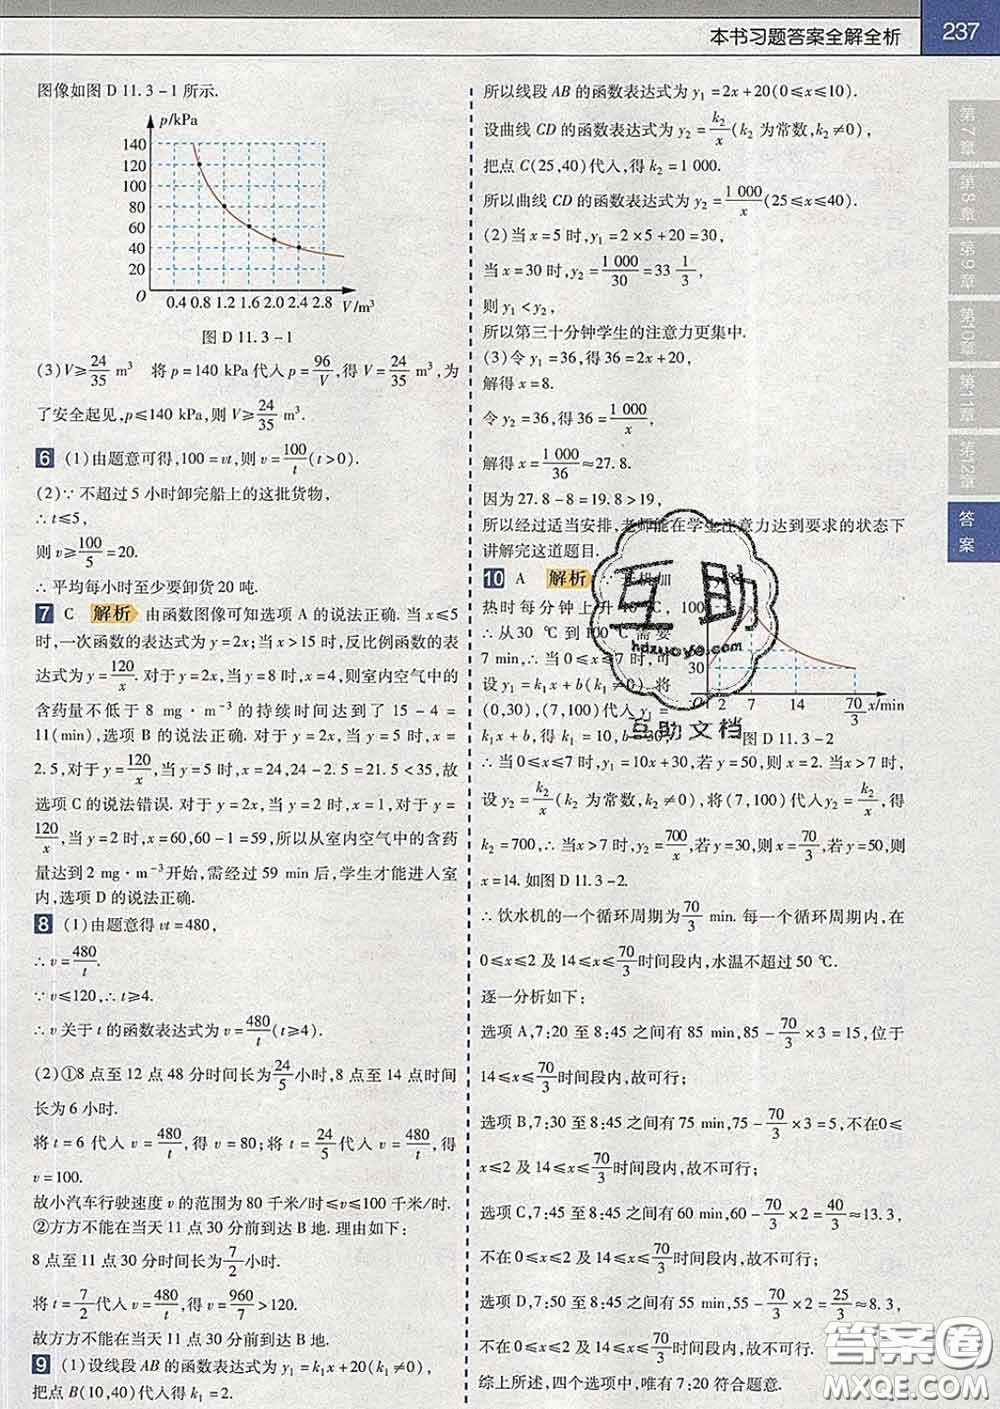 本书习题答案全解全析
237
图像如图 D 11.3-1 所示.
p/kPa
140
120
100
80
60
40
20
O
0.4 0.8 1.2 1.6 2.0 2.4 2.8 V/m³
图 D 11.3-1
(3)V≥24/35 m³ 将 p=140 kPa代入 p=96/V,得 V=24/35 m³,为
了安全起见,p≤140 kPa,则 V≥24/35 m³.
6 (1)由题意可得,100=vt,则 v=100/t(t>0).
(2)∵不超过 5 小时卸完船上的这批货物,
∴t≤5,
则 v≥100/5=20.
∴平均每小时至少要卸货 20 吨.
7 C 解析 由函数图像可知选项 A 的说法正确.当 x≤5
时,一次函数的表达式为 y=2x;当 x>15 时,反比例函数的表
达式为 y=120/x.对于 y=2x,当 y=8 时,x=4,则室内空气中的
含药量不低于 8 mg·m⁻³ 的持续时间达到了 15-4=
11(min),选项 B 的说法正确.对于 y=2x,当 y=5 时,x=
2.5,对于 y=120/x,当 y=5 时,x=24,24-2.5=21.5<35,故
选项 C 的说法错误.对于 y=2x,当 y=2 时,x=1,对于 y=
120/x,当 y=2 时,x=60,60-1=59,所以从室内空气中的含药
量达到 2 mg·m⁻³开始,需经过 59 min 后,学生才能进入室
内,选项 D 的说法正确.
8 (1)由题意得 vt=480,
∴v=480/t.
∵v≤120,∴t≥4.
∴v 关于 t 的函数表达式为 v=480/t(t≥4).
(2)①8 点至 12 点 48 分时间长为24/5小时,8 点至 14 点时间
长为 6 小时.
将 t=6 代入 v=480/t,得 v=80;将 t=24/5代入 v=480/t,得
v=100.
故小汽车行驶速度 v 的范围为 80 千米/时≤v≤100 千米/时.
②方方不能在当天 11 点 30 分前到达 B 地.理由如下:
8 点至 11 点 30 分时间长为7/2小时.
将 t=7/2代入 v=480/t,得 v=960/7>120.
故方方不能在当天 11 点 30 分前到达 B 地.
9 (1)设线段 AB 的函数表达式为 y₁=k₁x+20(k₁≠0),
把点 B(10,40)代入得 k₁=2.
所以线段 AB 的函数表达式为 y₁=2x+20(0≤x≤10).
设曲线 CD 的函数表达式为 y₂=k₂/x(k₂ 为常数,k₂≠0),
把点 C(25,40)代入,得 k₂=1 000.
所以曲线 CD 的函数表达式为 y₂=1 000/x(25≤x≤40).
(2)当 x=5 时,y₁=2×5+20=30,
当 x=30 时,y₂=1 000/30=33 1/3,
则 y₁<y₂,
所以第三十分钟学生的注意力更集中.
(3)令 y₁=36,得 36=2x+20,
解得 x=8.
令 y₂=36,得 36=1 000/x,
解得 x=1 000/36≈27.8.
因为 27.8-8=19.8>19,
所以经过适当安排,老师能在学生注意力达到要求的状态下
讲解完这道题目.
10 A 解析 ∵开机加
热时每分钟上升10 ℃,
∴从30 ℃到100 ℃需要
7 min,∴当 0≤x≤7 时,可
设 y₁=k₁x+b(k₁≠0),将
(0,30),(7,100)代入 y₁=
k₁x+b,得 k₁=10,b=30,
100
30
O 2 7 14 70/3 x/min
图 D 11.3-2
∴当 0≤x≤7 时,y₁=10x+30,若 y=50,则 x=2.当 x>7 时,
设 y₂=k₂/x(k₂ 为常数,k₂≠0),将(7,100)代入y₂=k₂/x,得
k₂=700,∴当 x>7 时,y₂=700/x,若 y=30,则 x=70/3,若 y=50,则
x=14.如图 D 11.3-2.
∴饮水机的一个循环周期为70/3 min.每一个循环周期内,在
0≤x≤2 及 14≤x≤70/3时间段内,水温不超过 50 ℃.
逐一分析如下:
选项 A,7:20 至 8:45 之间有 85 min,85-70/3×3=15,位于
14≤x≤70/3时间段内,故可行;
选项 B,7:30 至 8:45 之间有 75 min,75-70/3×3=5,不在0≤
x≤2 及 14≤x≤70/3时间段内,故不可行;
选项 C,7:45 至 8:45 之间有 60 min,60-70/3×2=40/3≈13.3,
不在 0≤x≤2 及 14≤x≤70/3时间段内,故不可行;
选项 D,7:50 至 8:45 之间有 55 min,55-70/3×2=25/3≈8.3,
不在 0≤x≤2 及 14≤x≤70/3时间段内,故不可行.
综上所述,四个选项中,唯有 7:20 符合题意.
第7章
第8章
第9章
第10章
第11章
第12章
答案
互助
hdzuoye.com
互助文档
答案圈
MXQE.COM